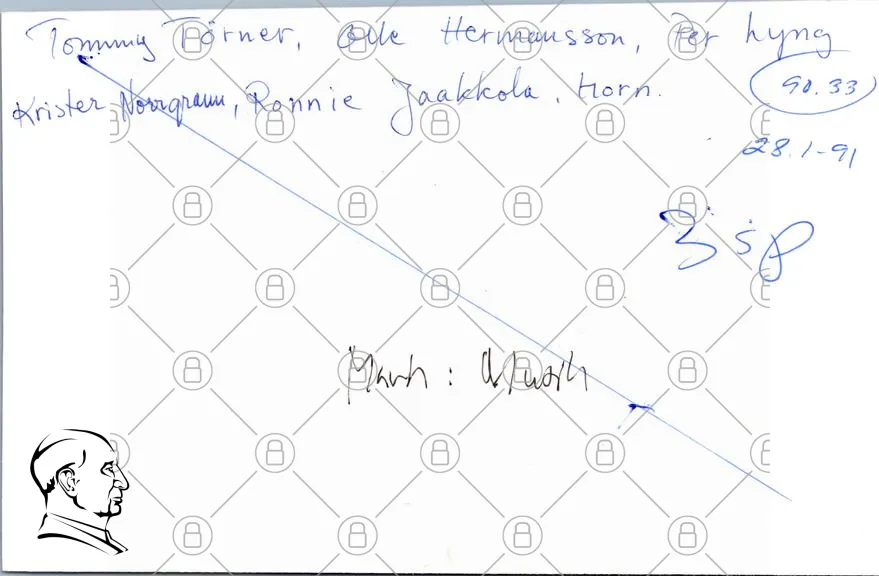 Tommy Törner, Olle Hermansson, Per Lyng
Krister Norrgrann, Ronnie Jaakkola, Horn.
90.33
28.1-91
3 sp